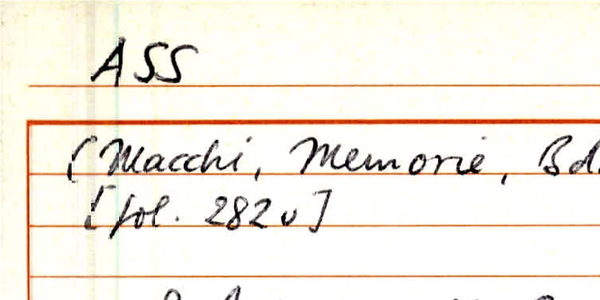 ASS
(Macchi, Memorie, Bd.
[fol. 282v]